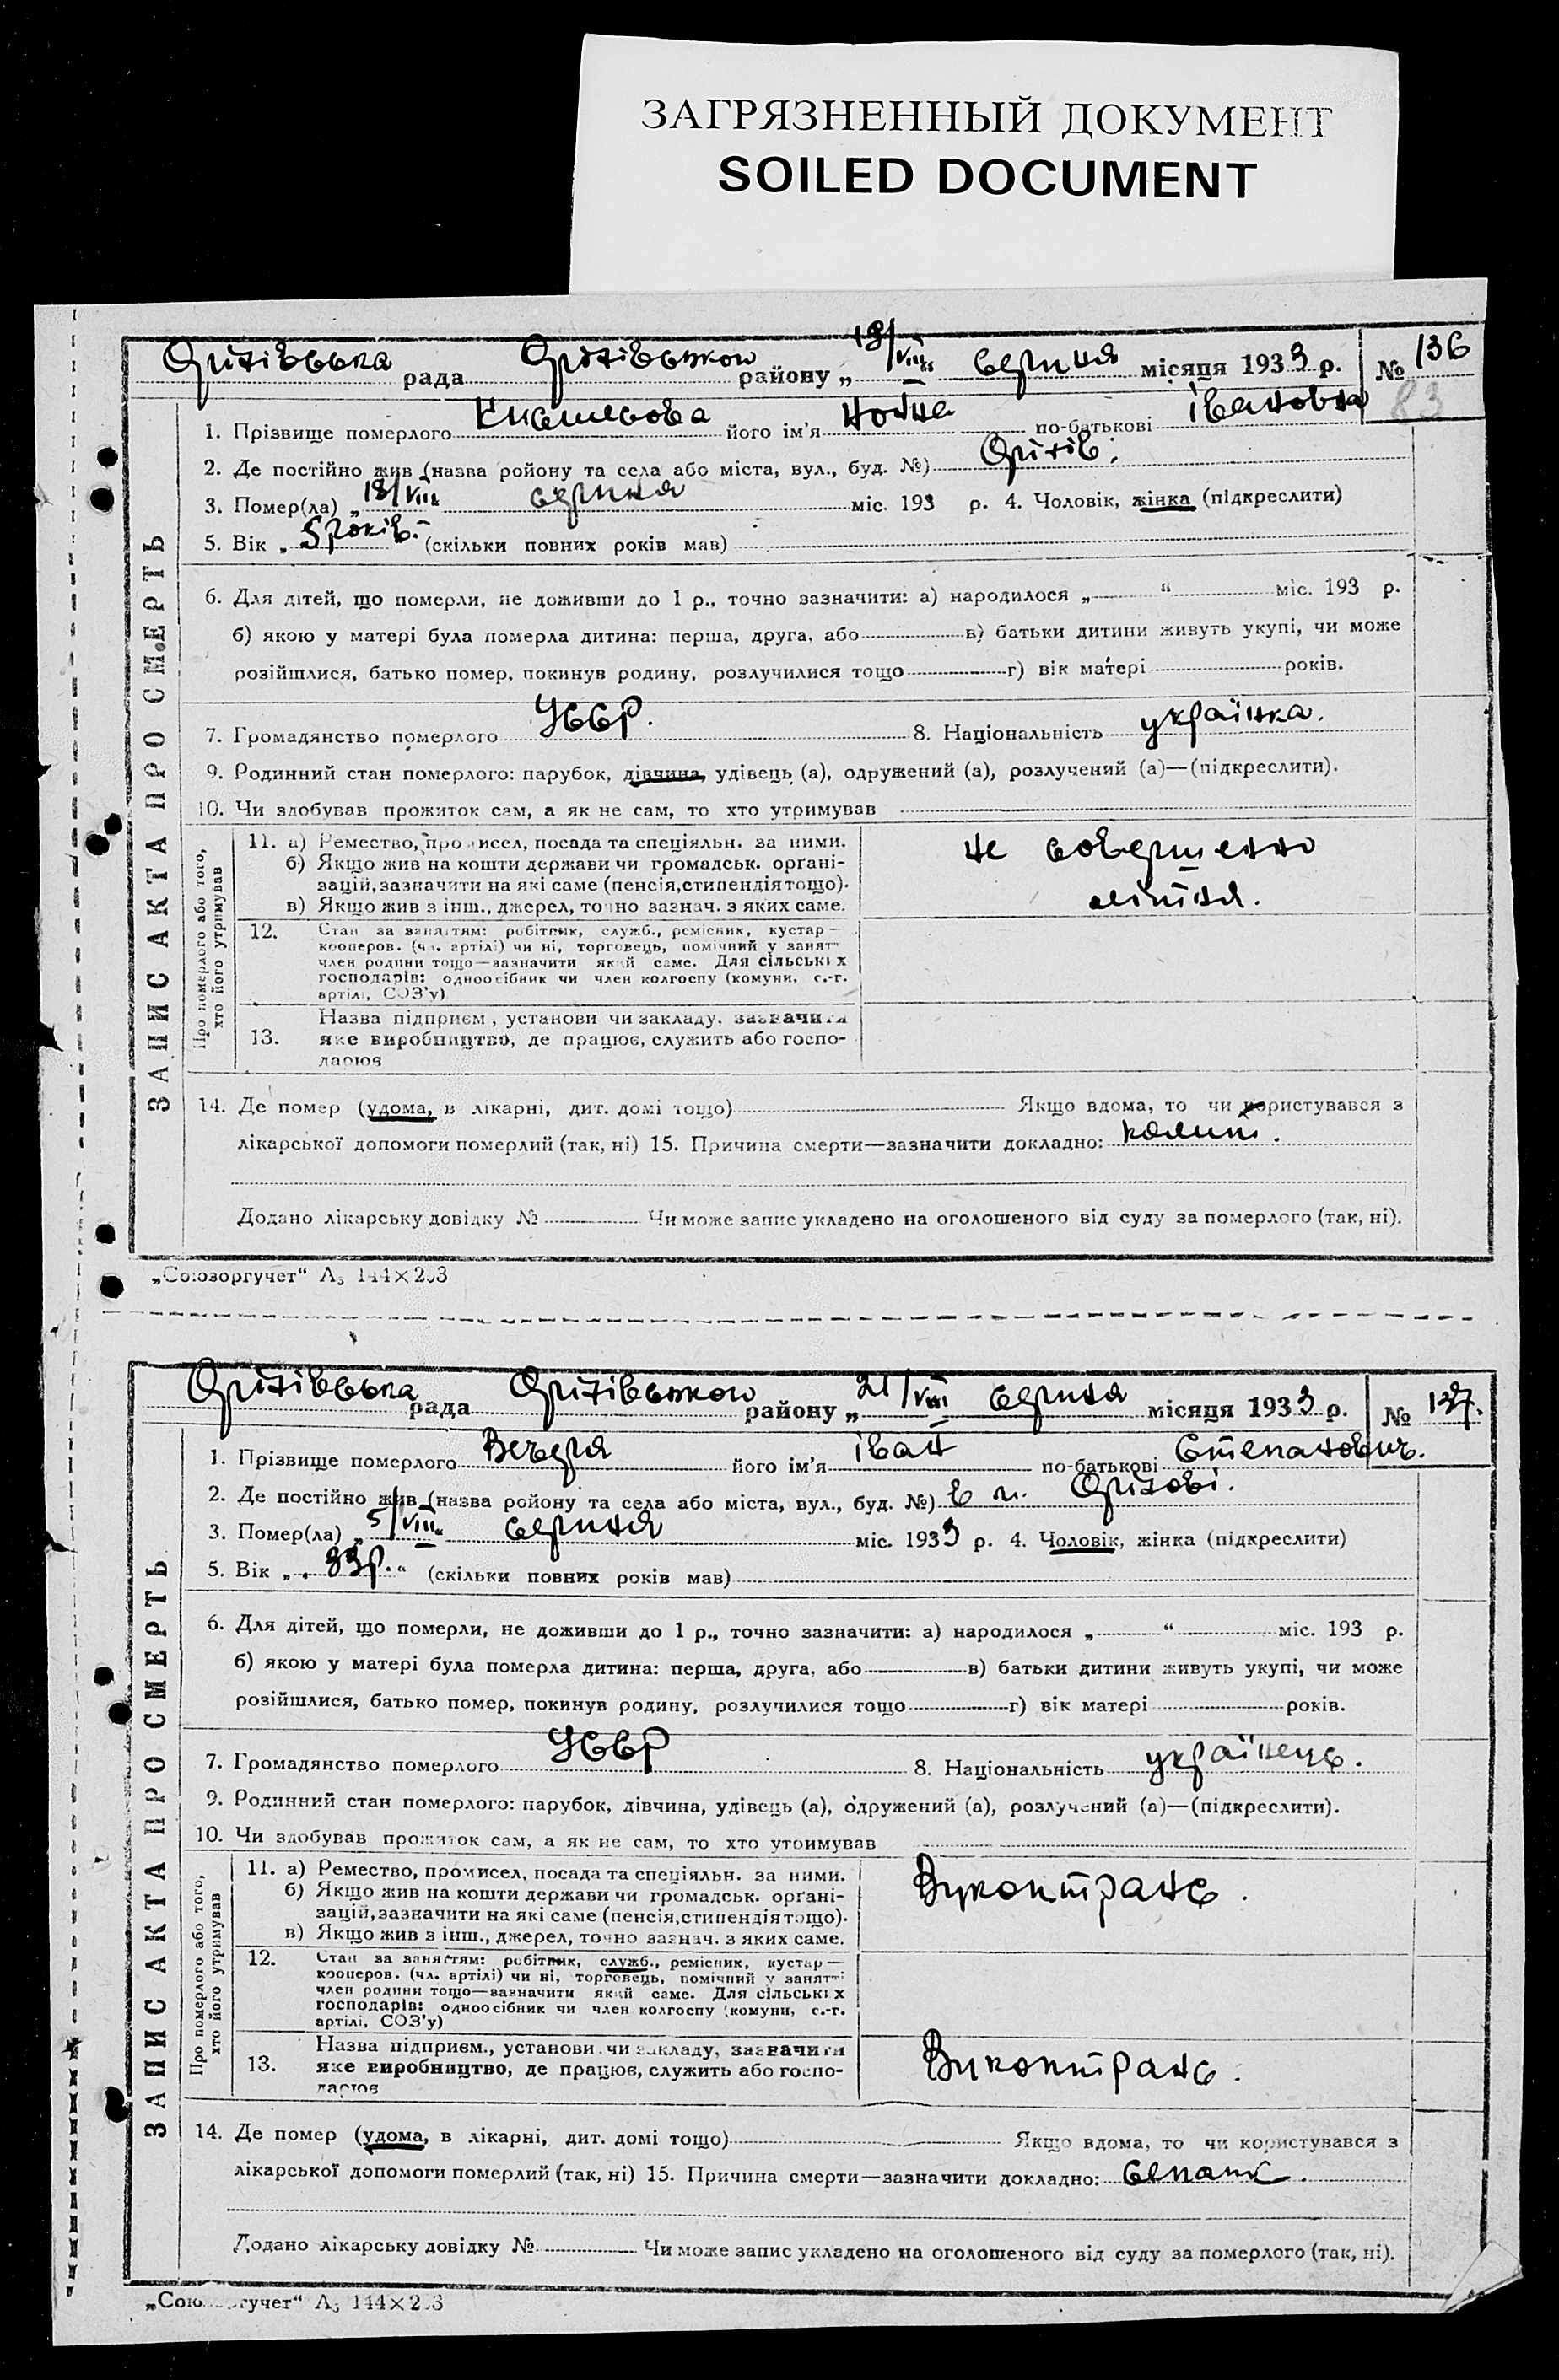 ЗАГРЯЗНЕННЫЙ ДОКУМЕНТ
SOILED DOCUMENT
Оріхівська рада Оріхівського району „18/VIII“ серпня місяця 1933 р. № 136
83
1. Прізвище померлого його ім'я по-батькові Івановна
2. Де постійно жив (назва ройону та села або міста, вул., буд. №) Оріхів.
3. Помер(ла) „18/VIII“ серпня міс. 193 р. 4. Чоловік, жінка (підкреслити)
5. Вік „ 5 років. (скільки повних років мав)
6. Для дітей, що померли, не доживши до 1 р., точно зазначити: а) народилося „ “ міс. 193 р.
б) якою у матері була померла дитина: перша, друга, або в) батьки дитини живуть укупі, чи може
розійшлися, батько помер, покинув родину, розлучилися тощо г) вік матері років.
7. Громадянство померлого УССР. 8. Національність українка.
9. Родинний стан померлого: парубок, дівчина, удівець (а), одружений (а), розлучений (а)—(підкреслити).
10. Чи здобував прожиток сам, а як не сам, то хто утримував
ЗАПИС АКТА ПРО СМЕРТЬ
Про померлого або того,
хто його утримував
11. а) Ремество, промисел, посада та спеціяльн. за ними.
б) Якщо жив на кошти держави чи громадськ. орґані-
зацій, зазначити на які саме (пенсія, стипендія тощо).
в) Якщо жив з інш., джерел, точно зазнач. з яких саме.
не совершенно
літня.
12. Стан за заняттям: робітник, служб., ремісник, кустар—
кооперов. (чл. артілі) чи ні, торговець, помічний у занятті
член родини тощо—зазначити який саме. Для сільських
господарів: одноосібник чи член колгоспу (комуни, с.-г.
артілі, СОЗ'у)
13. Назва підприєм., установи чи закладу, зазначити
яке виробництво, де працює, служить або госпо-
дарює
14. Де помер (удома, в лікарні, дит. домі тощо) Якщо вдома, то чи користувався з
лікарської допомоги померлий (так, ні) 15. Причина смерти—зазначити докладно:
Додано лікарську довідку № Чи може запис укладено на оголошеного від суду за померлого (так, ні).
„Союзоргучет“ А₅ 144×203
Оріхівська рада Оріхівського району „21/VIII серпня місяця 1933 р. № 137.
1. Прізвище померлого Вечеря його ім'я Іван по-батькові Степанович.
2. Де постійно жив (назва ройону та села або міста, вул., буд. №) в м. Оріхові.
3. Помер(ла) „5/VIII“ серпня міс. 1933 р. 4. Чоловік, жінка (підкреслити)
5. Вік „ 33 р. “ (скільки повних років мав)
6. Для дітей, що померли, не доживши до 1 р., точно зазначити: а) народилося „ “ міс. 193 р.
б) якою у матері була померла дитина: перша, друга, або в) батьки дитини живуть укупі, чи може
розійшлися, батько помер, покинув родину, розлучилися тощо г) вік матері років.
7. Громадянство померлого УССР 8. Національність українець.
9. Родинний стан померлого: парубок, дівчина, удівець (а), одружений (а), розлучений (а)—(підкреслити).
10. Чи здобував прожиток сам, а як не сам, то хто утримував
ЗАПИС АКТА ПРО СМЕРТЬ
Про померлого або того,
хто його утримував
11. а) Ремество, промисел, посада та спеціяльн. за ними.
б) Якщо жив на кошти держави чи громадськ. орґані-
зацій, зазначити на які саме (пенсія, стипендія тощо).
в) Якщо жив з інш., джерел, точно зазнач. з яких саме.
Вукоптранс.
12. Стан за заняттям: робітник, служб., ремісник, кустар—
кооперов. (чл. артілі) чи ні, торговець, помічний у занятті
член родини тощо—зазначити який саме. Для сільських
господарів: одноосібник чи член колгоспу (комуни, с.-г.
артілі, СОЗ'у)
13. Назва підприєм., установи чи закладу, зазначити
яке виробництво, де працює, служить або госпо-
дарює
Вукоптранс.
14. Де помер (удома, в лікарні, дит. домі тощо) Якщо вдома, то чи користувався з
лікарської допомоги померлий (так, ні) 15. Причина смерти—зазначити докладно:
Додано лікарську довідку № Чи може запис укладено на оголошеного від суду за померлого (так, ні).
„Союзоргучет“ А₅ 144×203